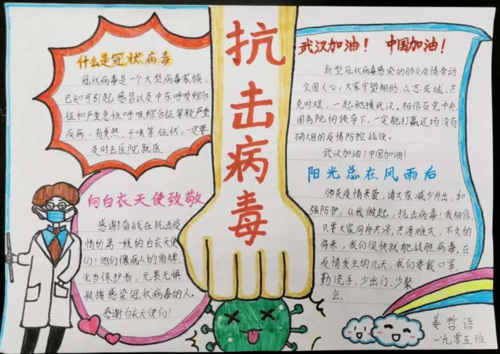 什么是冠状病毒
冠状病毒是一个大型病毒家族,
已知可引起感冒以及中东呼吸综合
征和严重急性呼吸综合征等较严重
疾病,有发热、干咳等症状,一定要
及时去医院就医
向白衣天使致敬
感谢!奋战在抗击疫
情的第一线的白衣天使
们!他们像病人的肩牌,
无当保护者,无畏无惧
救援感染冠状病毒的人,
感谢白衣天使们!
抗击病毒
武汉加油! 中国加油!
新型冠状病毒感染的肺炎疫情牵动
全国人心,大家守望相助,众志成城,共
克时艰,一起驰援武汉,相信在党中央
国务院的领导下,一定能打赢这场没有
硝烟的疫情防控战役。
武汉加油!中国加油!
阳光总在风雨后
肺炎疫情来袭,请大家减少外出,加
强防护,从我做起,抗击病毒!我相信
只要大家同舟共济,共渡难关,不久的
将来,我们很快就能战胜病毒,在
疫情发生的几天,我们要戴口罩,
勤洗手,少出门,少聚
会
姜哲语
一九零五班